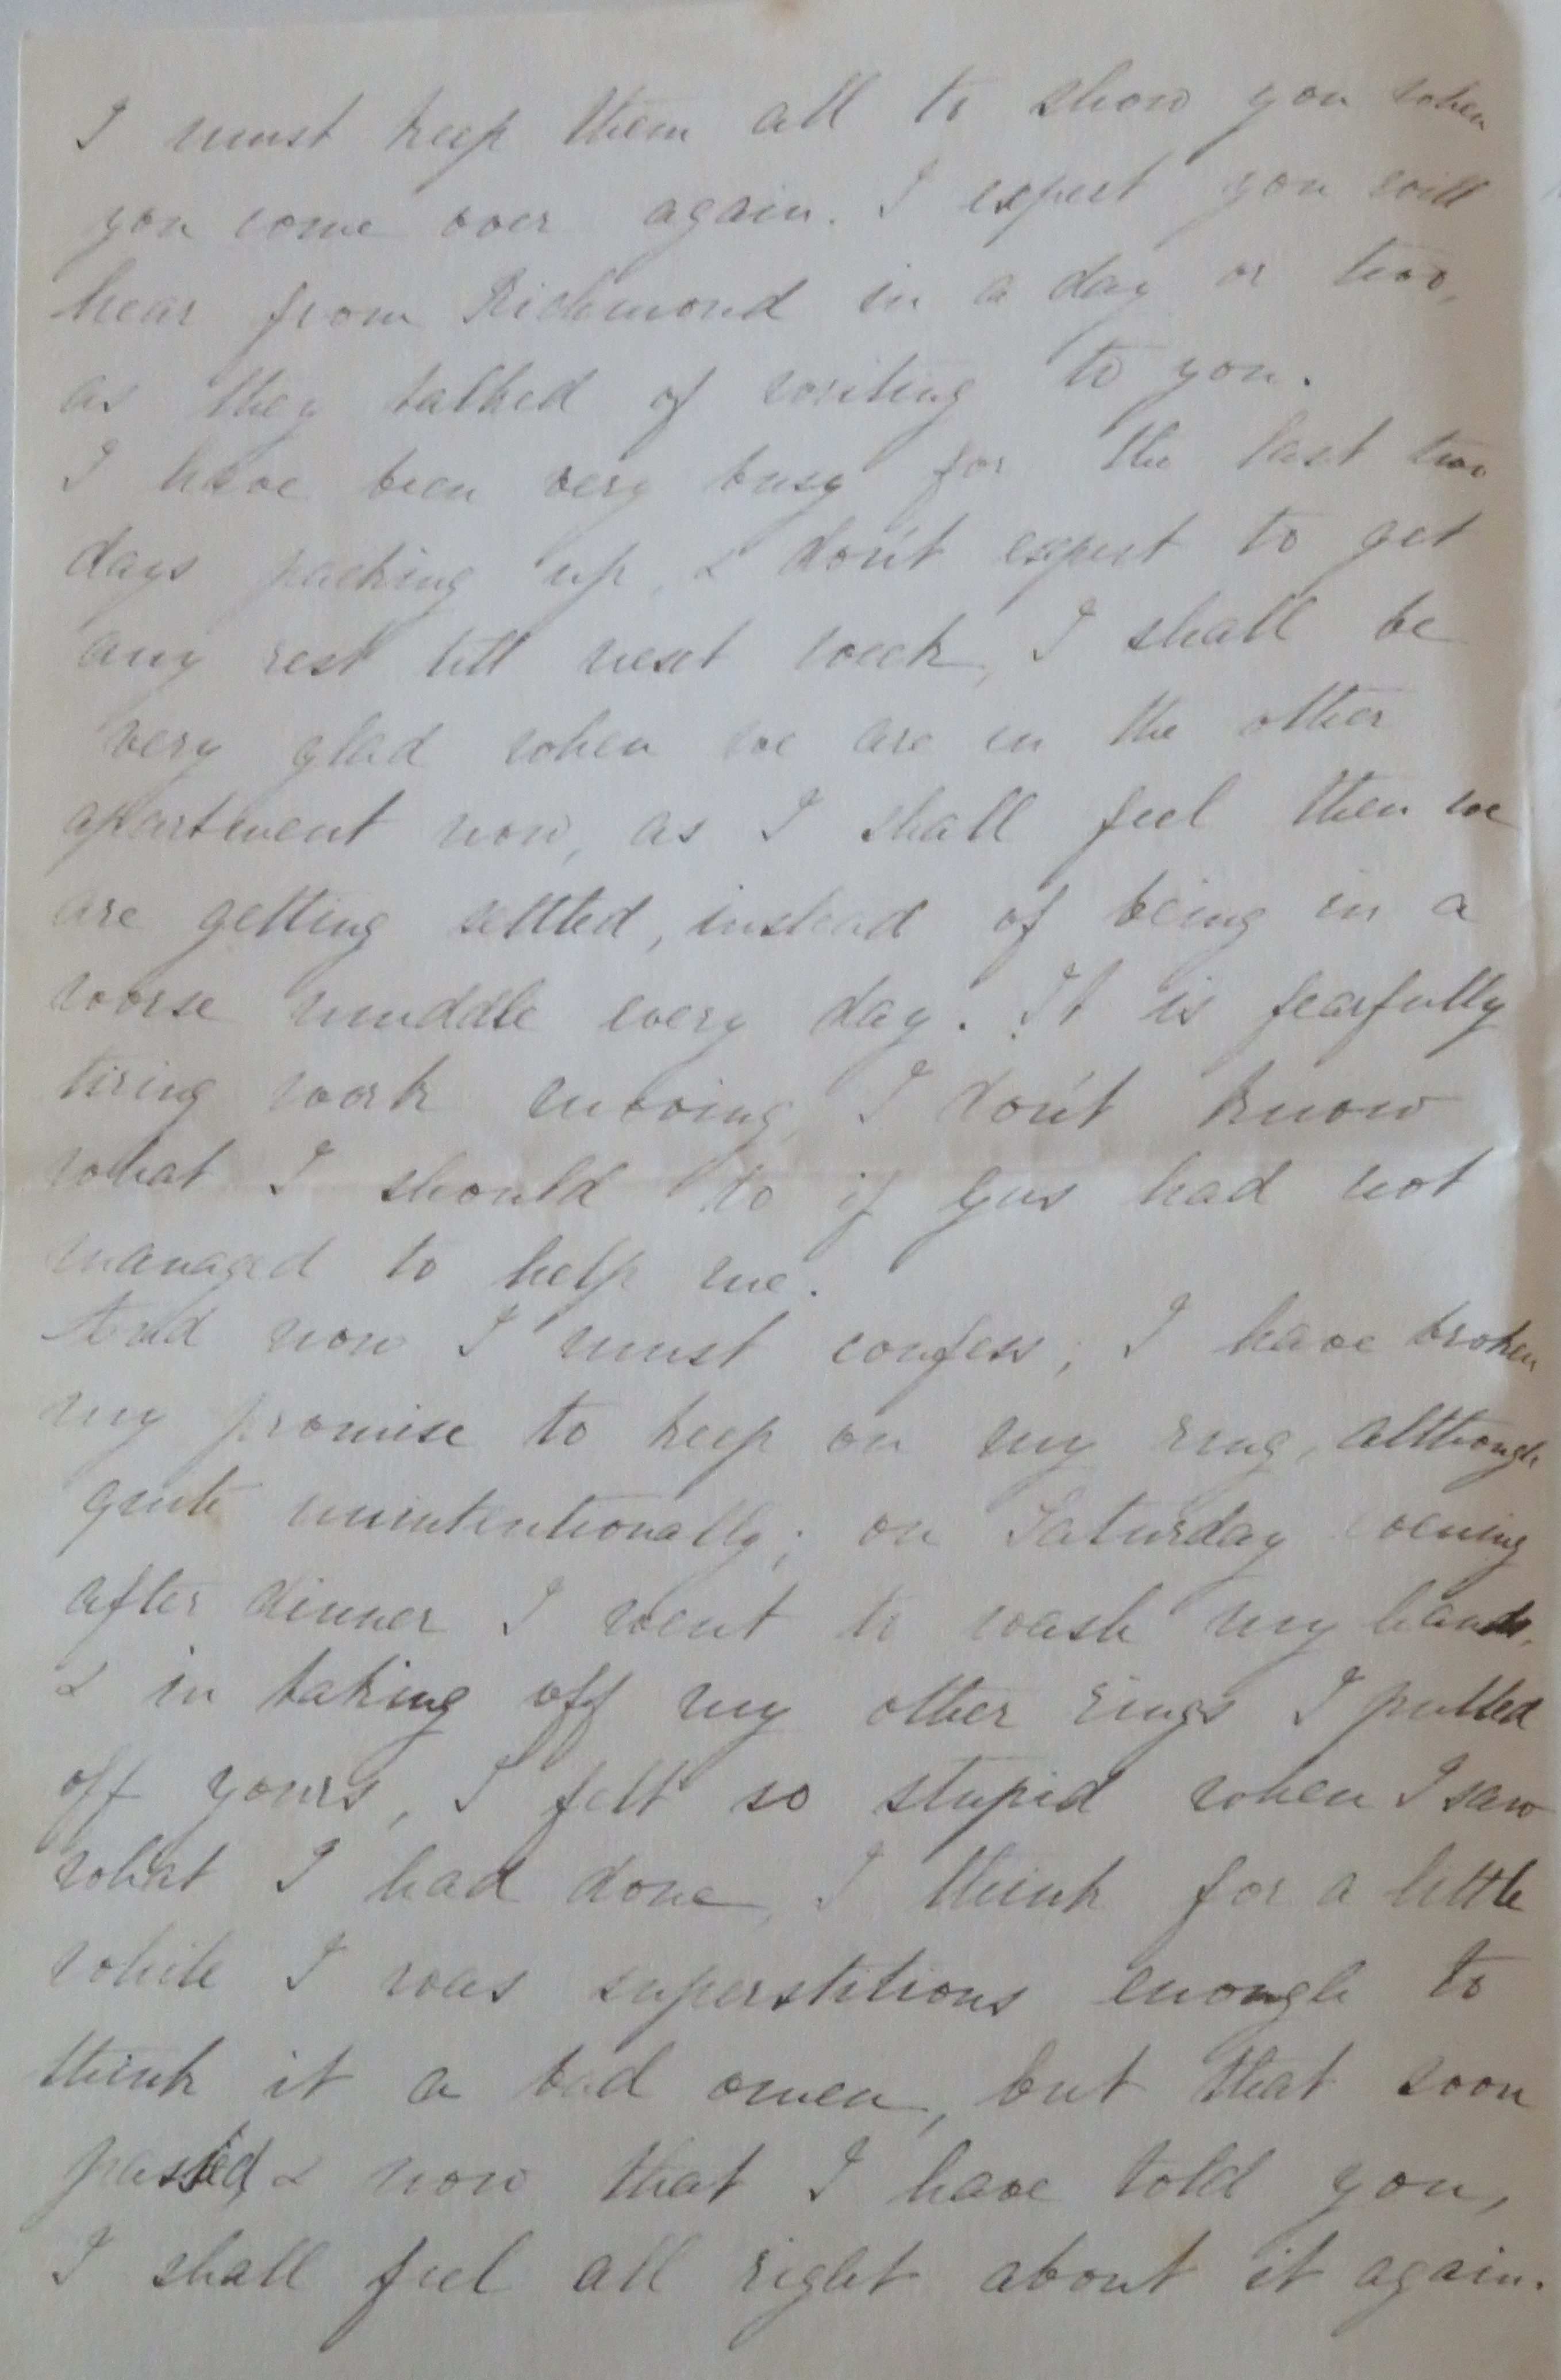 I must keep them all to show you when
you come over again. I expect you will
hear from Richmond in a day or two,
as they talked of writing to you.
I have been very busy for the last two
days packing up, & don't expect to get
any rest till next week, I shall be
very glad when we are in the other
apartment now, as I shall feel then we
are getting settled, instead of being in a
worse muddle every day. It is fearfully
tiring work moving, I don't know
what I should do if Gus had not
managed to help me.
And now I must confess; I have broken
my promise to keep on my ring, although
quite unintentionally; on Saturday evening
after dinner I went to wash my hands,
& in taking off my other rings I pulled
off yours, I felt so stupid when I saw
what I had done, I think for a little
while I was superstitious enough to
think it a bad omen, but that soon
passed, & now that I have told you,
I shall feel all right about it again.